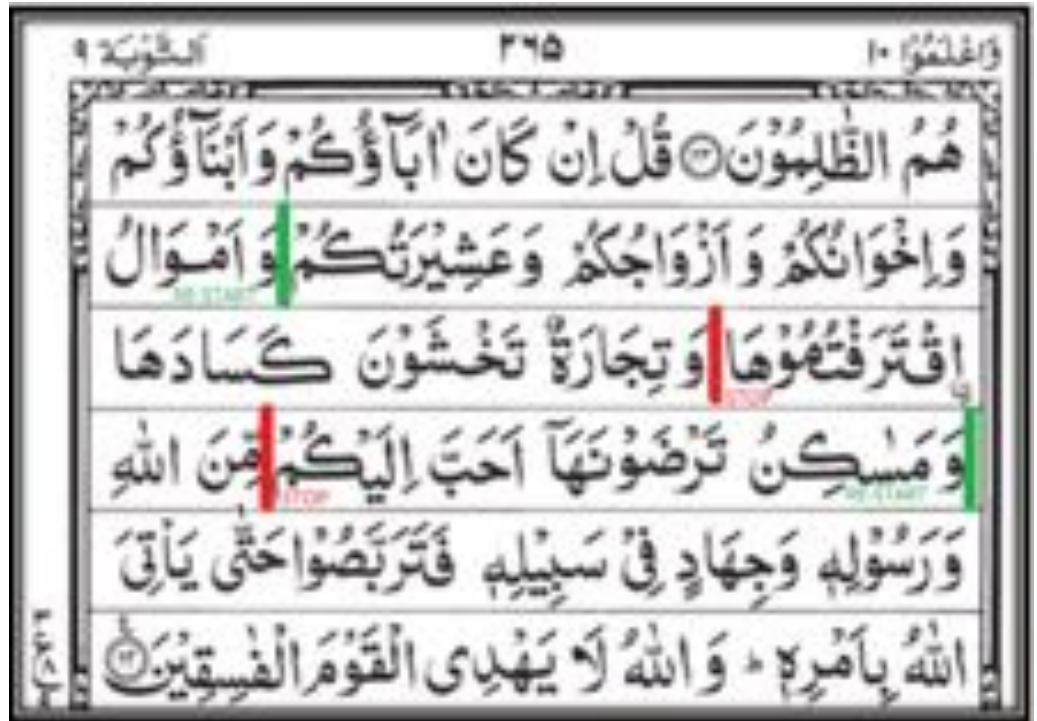 وَاعْلَمُوْا ١٠ ٢٦۵ اَلتَّوْبَة ٩
هُمُ الظّٰلِمُوْنَ ۝٢٣ قُلْ اِنْ كَانَ اٰبَآؤُكُمْ وَاَبْنَآؤُكُمْ
وَاِخْوَانُكُمْ وَ اَزْوَاجُكُمْ وَعَشِيْرَتُكُمْ وَ اَمْوَالُ
RE-START
اِۨقْتَرَفْتُمُوْهَا وَتِجَارَةٌ تَخْشَوْنَ كَسَادَهَا
STOP
وَمَسٰكِنُ تَرْضَوْنَهَآ اَحَبَّ اِلَيْكُمْ مِّنَ اللّٰهِ
RE-START
STOP
وَرَسُوْلِهٖ وَجِهَادٍ فِيْ سَبِيْلِهٖ فَتَرَبَّصُوْا حَتّٰى يَاْتِيَ
اللّٰهُ بِاَمْرِهٖ ؕ وَ اللّٰهُ لَا يَهْدِى الْقَوْمَ الْفٰسِقِيْنَ ۝٢٤